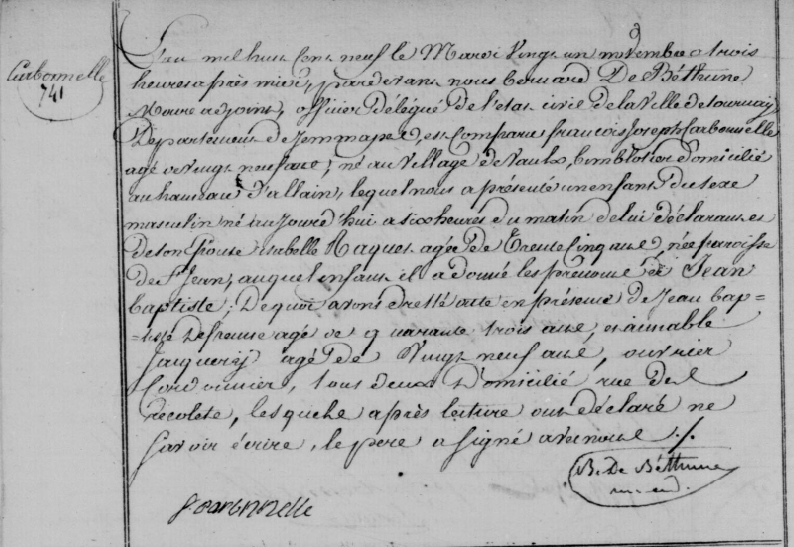 Carbonnelle
741
L'an mil huit cent neuf le Mardi vingt un novembre a trois
heures après midi, pardevant nous bernard De Béthune
Maire adjoint, officier délégué de l'état civil de la Ville de tournay
Département de Jemmape, est comparu françois Joseph Carbonnelle
agé de vingt neuf ans, né au village de Vaulx, domicilié
au hameau d'allain, lequel nous a présenté un enfant du sexe
masculin né aujourd'hui a six heures du matin de lui déclarant et
de son épouse isabelle Raquet agée de trente cinq ans, née paroisse
de St Jean, auquel enfant il a donné les prénoms de Jean
baptiste; De quoi avons dressé acte en présence de Jean bap=
=tiste Defresne agé de quarante trois ans, et aimable
Jacquerÿ agé de Vingt neuf ans, ouvrier
Cordonnier, tous deux domicilié rue des
recolets, lesquels après lecture ont déclaré ne
savoir écrire, le pere a signé avec nous ./.
B. De Béthune
f carbonnelle